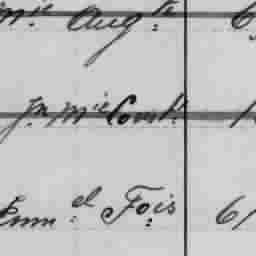 m.ie Aug.te 6
Jn m.ie Const.
Emm.el Fois 61